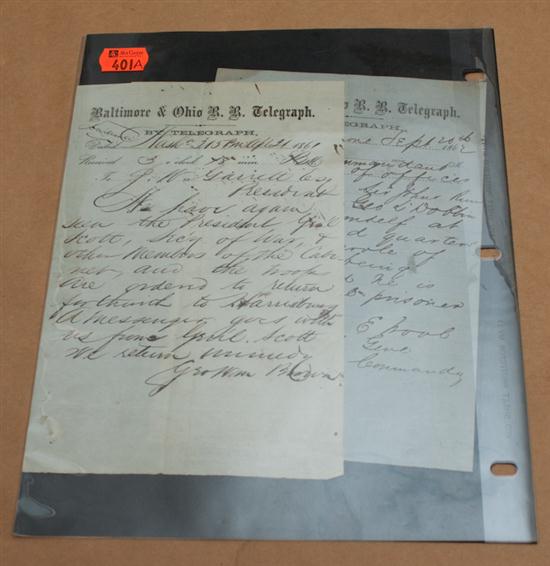 401A
Baltimore & Ohio R. R. Telegraph.
BY TELEGRAPH,
Dated Wash 1861
Received 3 o'clock min. P.M.
To J W Garrett Esq
President
We have again
seen the President Genl
Scott, Secy of War, &
other members of the Cabi
net, and the troops
are orderd to return
forthwith to Harrisburg
A messenger goes with
us from Genl. Scott
We return immedy
Geo Wm Brown
R. R. Telegraph.
EGRAPH,
Sept 20th
1862
of offices
himself at
quarters
people of
being
he is
prisoner
E Wool
Genl
Commandg